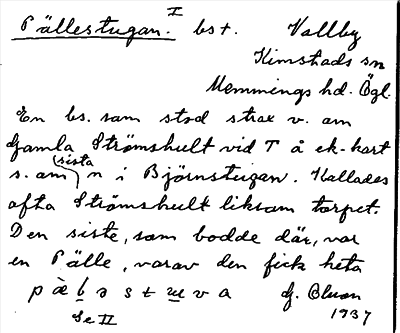 Pällestugan. I bst. Vallby
Kimstads sn
Memmings hd. Ögl.
En bs. som stod strax v. om
Gamla Strömshult vid T å ek-kart
s. om (sista) n i Björnstugan. Kallades
ofta Strömshult liksom torpet.
Den siste, som bodde där, var
en Pälle, varav den fick heta
G.
1937
Se II